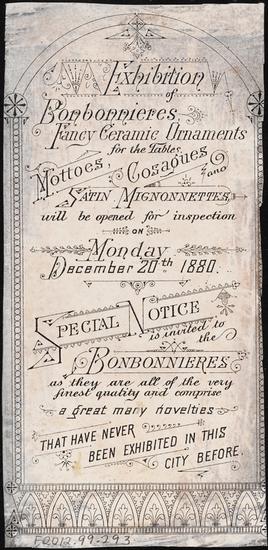 Exhibition
of
Bonbonnieres,
Fancy Ceramic Ornaments
for the Tables.
Mottoes, Cosaques and
Satin Mignonnettes,
will be opened for inspection
ON
Monday
December 20th 1880.
Special Notice
is invited to
the
Bonbonnieres
as they are all of the very
finest quality and comprise
a great many novelties
THAT HAVE NEVER
BEEN EXHIBITED IN THIS
CITY BEFORE.
E2012.99.293